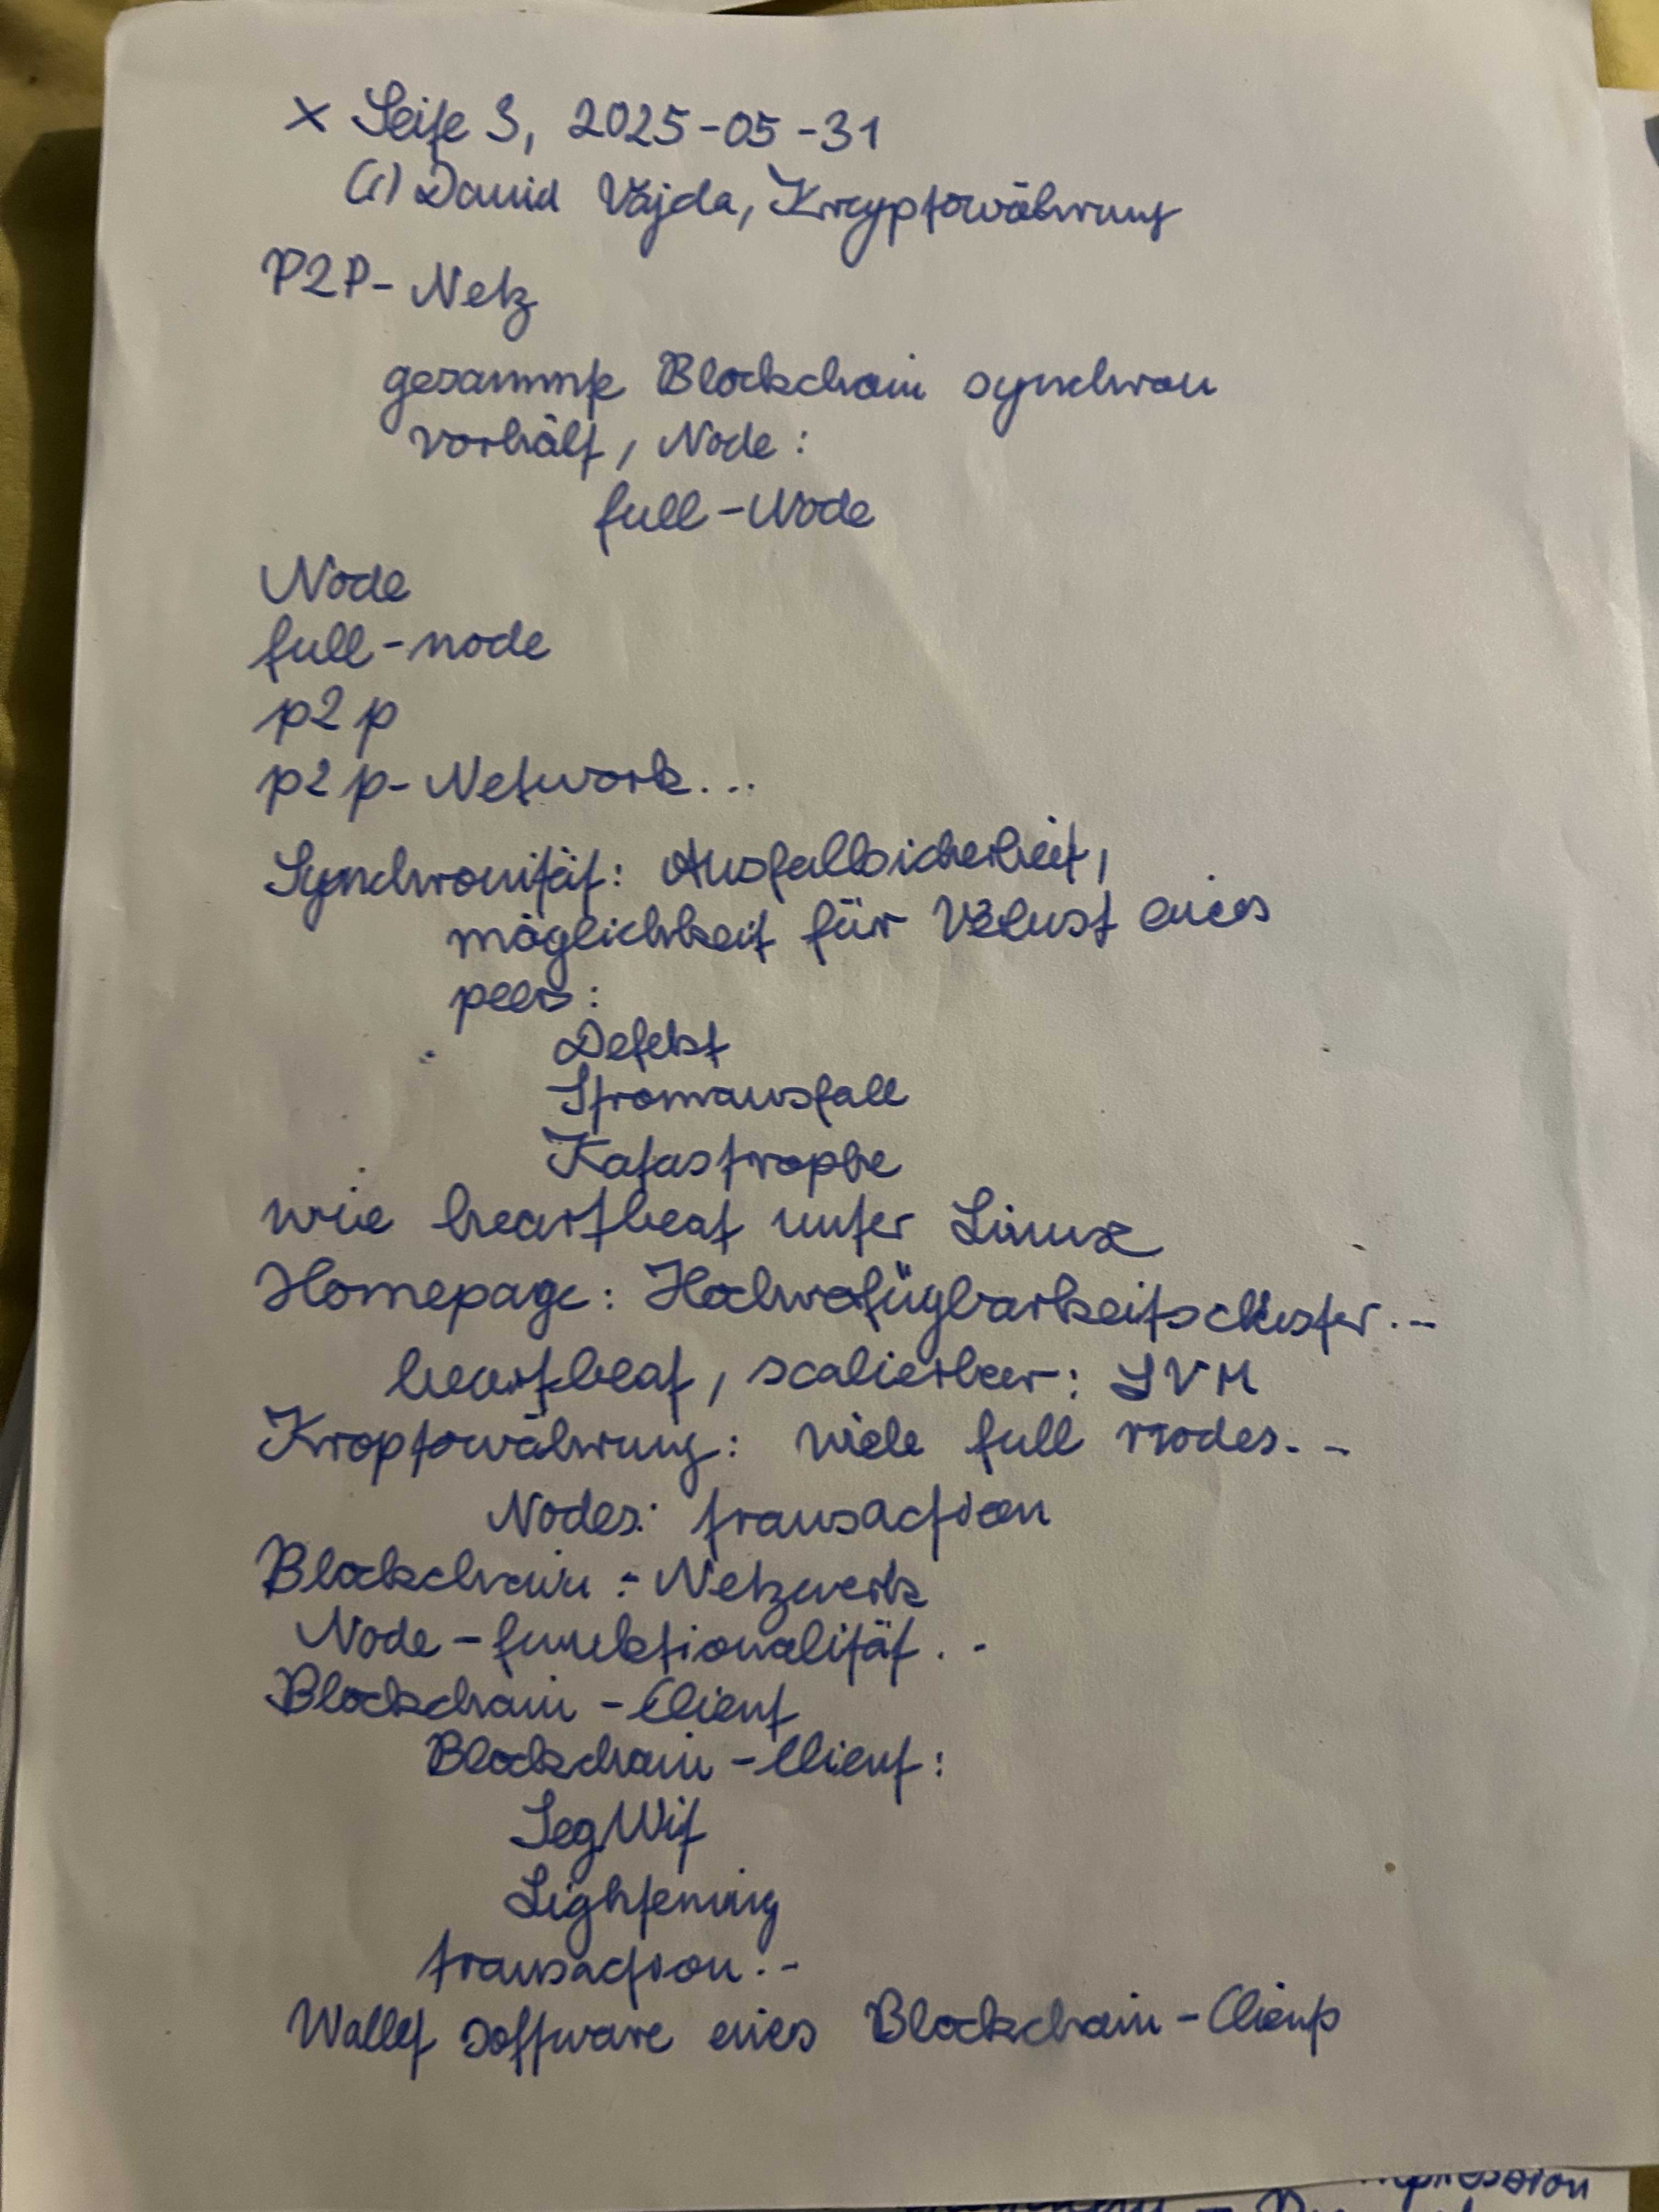 x Seite 3, 2025-05-31
(c) David Vajda, Kryptowährung
P2P-Netz
gesammte Blockchain synchron
vorhält, Node:
full-Node
Node
full-node
p2p
p2p-Network...
Synchronität: Ausfallsicherheit,
möglichkeit für Verlust eines
peers:
Defekt
Stromausfall
Katastrophe
wie heartbeat unter Linux
Homepage: Hochverfügbarkeitscluster...
heartbeat, scalierbar: LVM
Kroptowährung: viele full nodes...
Nodes: transaction
Blockchain-Netzwerk
Node-funktionalität...
Blockchain-Client
Blockchain-Client:
SegWit
Lightening
transaction..
Wallet software eines Blockchain-Clients